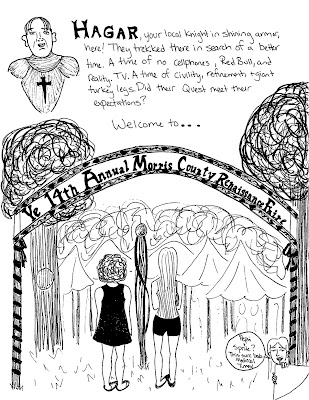 HAGAR, your local knight in shining armor,
here! They trekked there in search of a better
time. A time of no cellphones, Red Bull, and
reality TV. A time of civility, refinement + giant
turkey legs. Did their Quest meet their
expectations?
Welcome to...
Ye 14th Annual Morris County Renaissance Faire
Pepsi
Sprite?